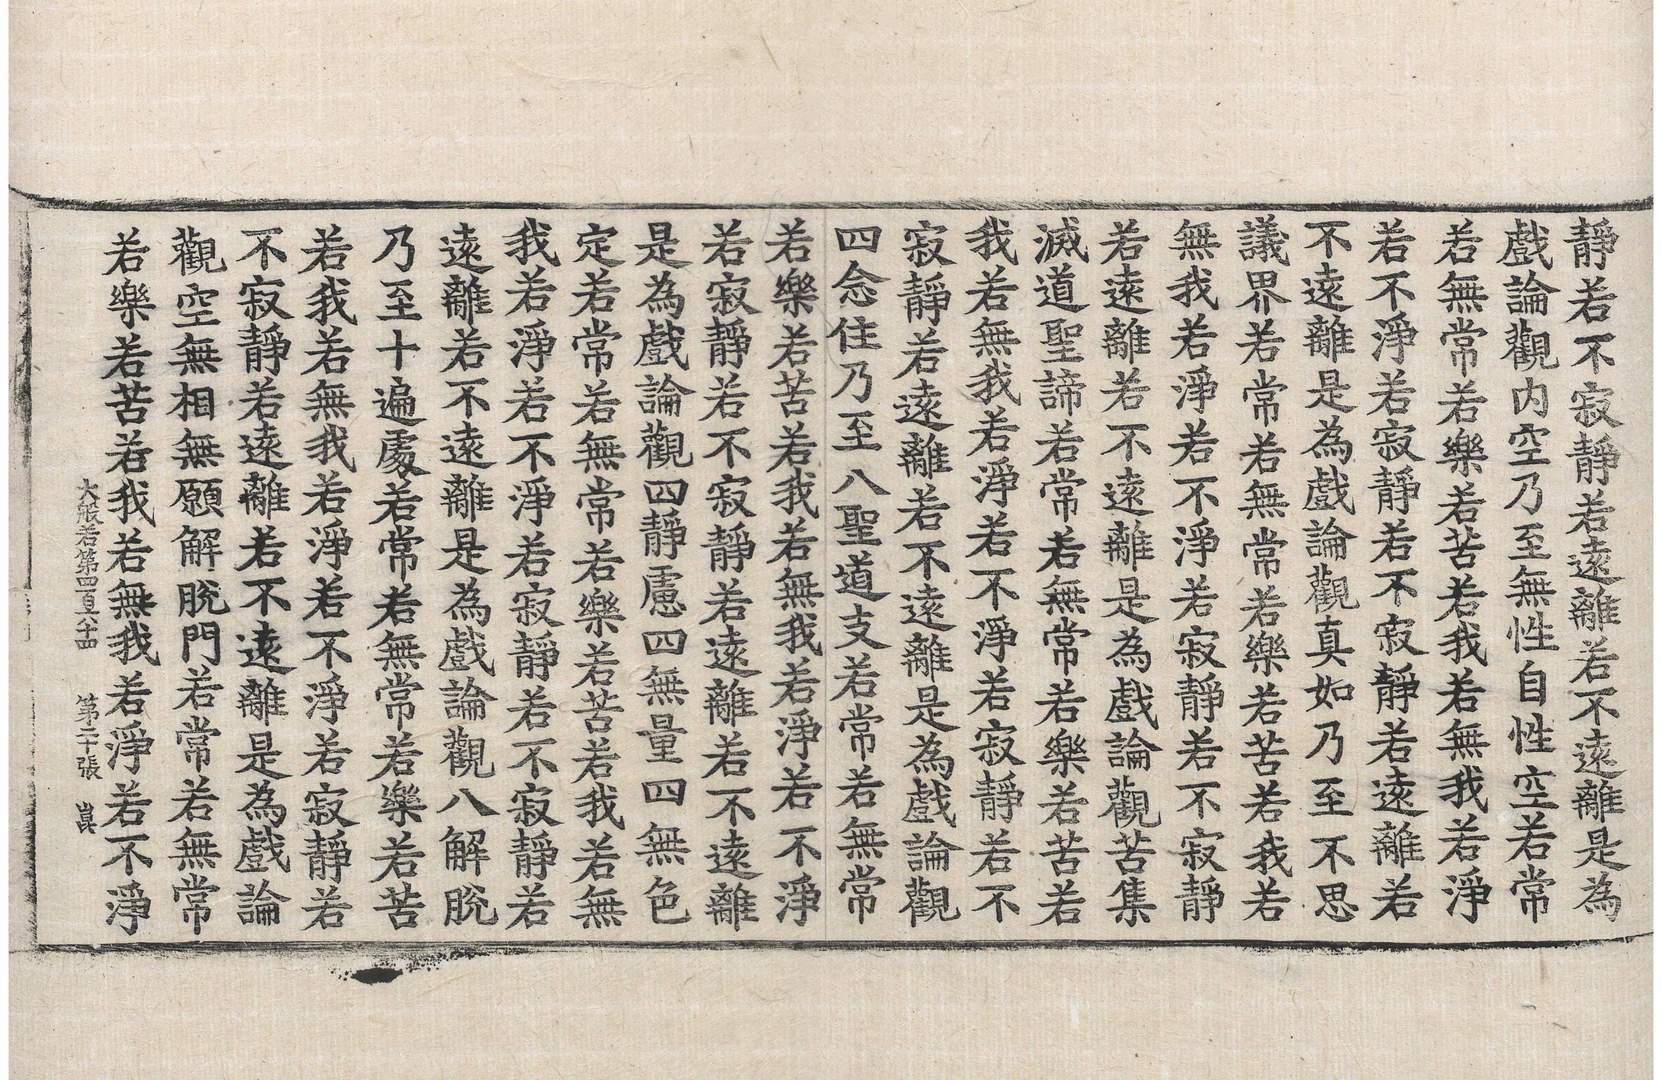 靜若不寂靜若遠離若不遠離是為
戲論觀内空乃至無性自性空若常
若無常若樂若苦若我若無我若淨
若不淨若寂靜若不寂靜若遠離若
不遠離是為戲論觀真如乃至不思
議界若常若無常若樂若苦若我若
無我若淨若不淨若寂靜若不寂靜
若遠離若不遠離是為戲論觀苦集
滅道聖諦若常若無常若樂若苦若
我若無我若淨若不淨若寂靜若不
寂靜若遠離若不遠離是為戲論觀
四念住乃至八聖道支若常若無常
若樂若苦若我若無我若淨若不淨
若寂靜若不寂靜若遠離若不遠離
是為戲論觀四靜慮四無量四無色
定若常若無常若樂若苦若我若無
我若淨若不淨若寂靜若不寂靜若
遠離若不遠離是為戲論觀八解脫
乃至十遍處若常若無常若樂若苦
若我若無我若淨若不淨若寂靜若
不寂靜若遠離若不遠離是為戲論
觀空無相無願解脫門若常若無常
若樂若苦若我若無我若淨若不淨
大般若第四百六十四 第二十張 崑